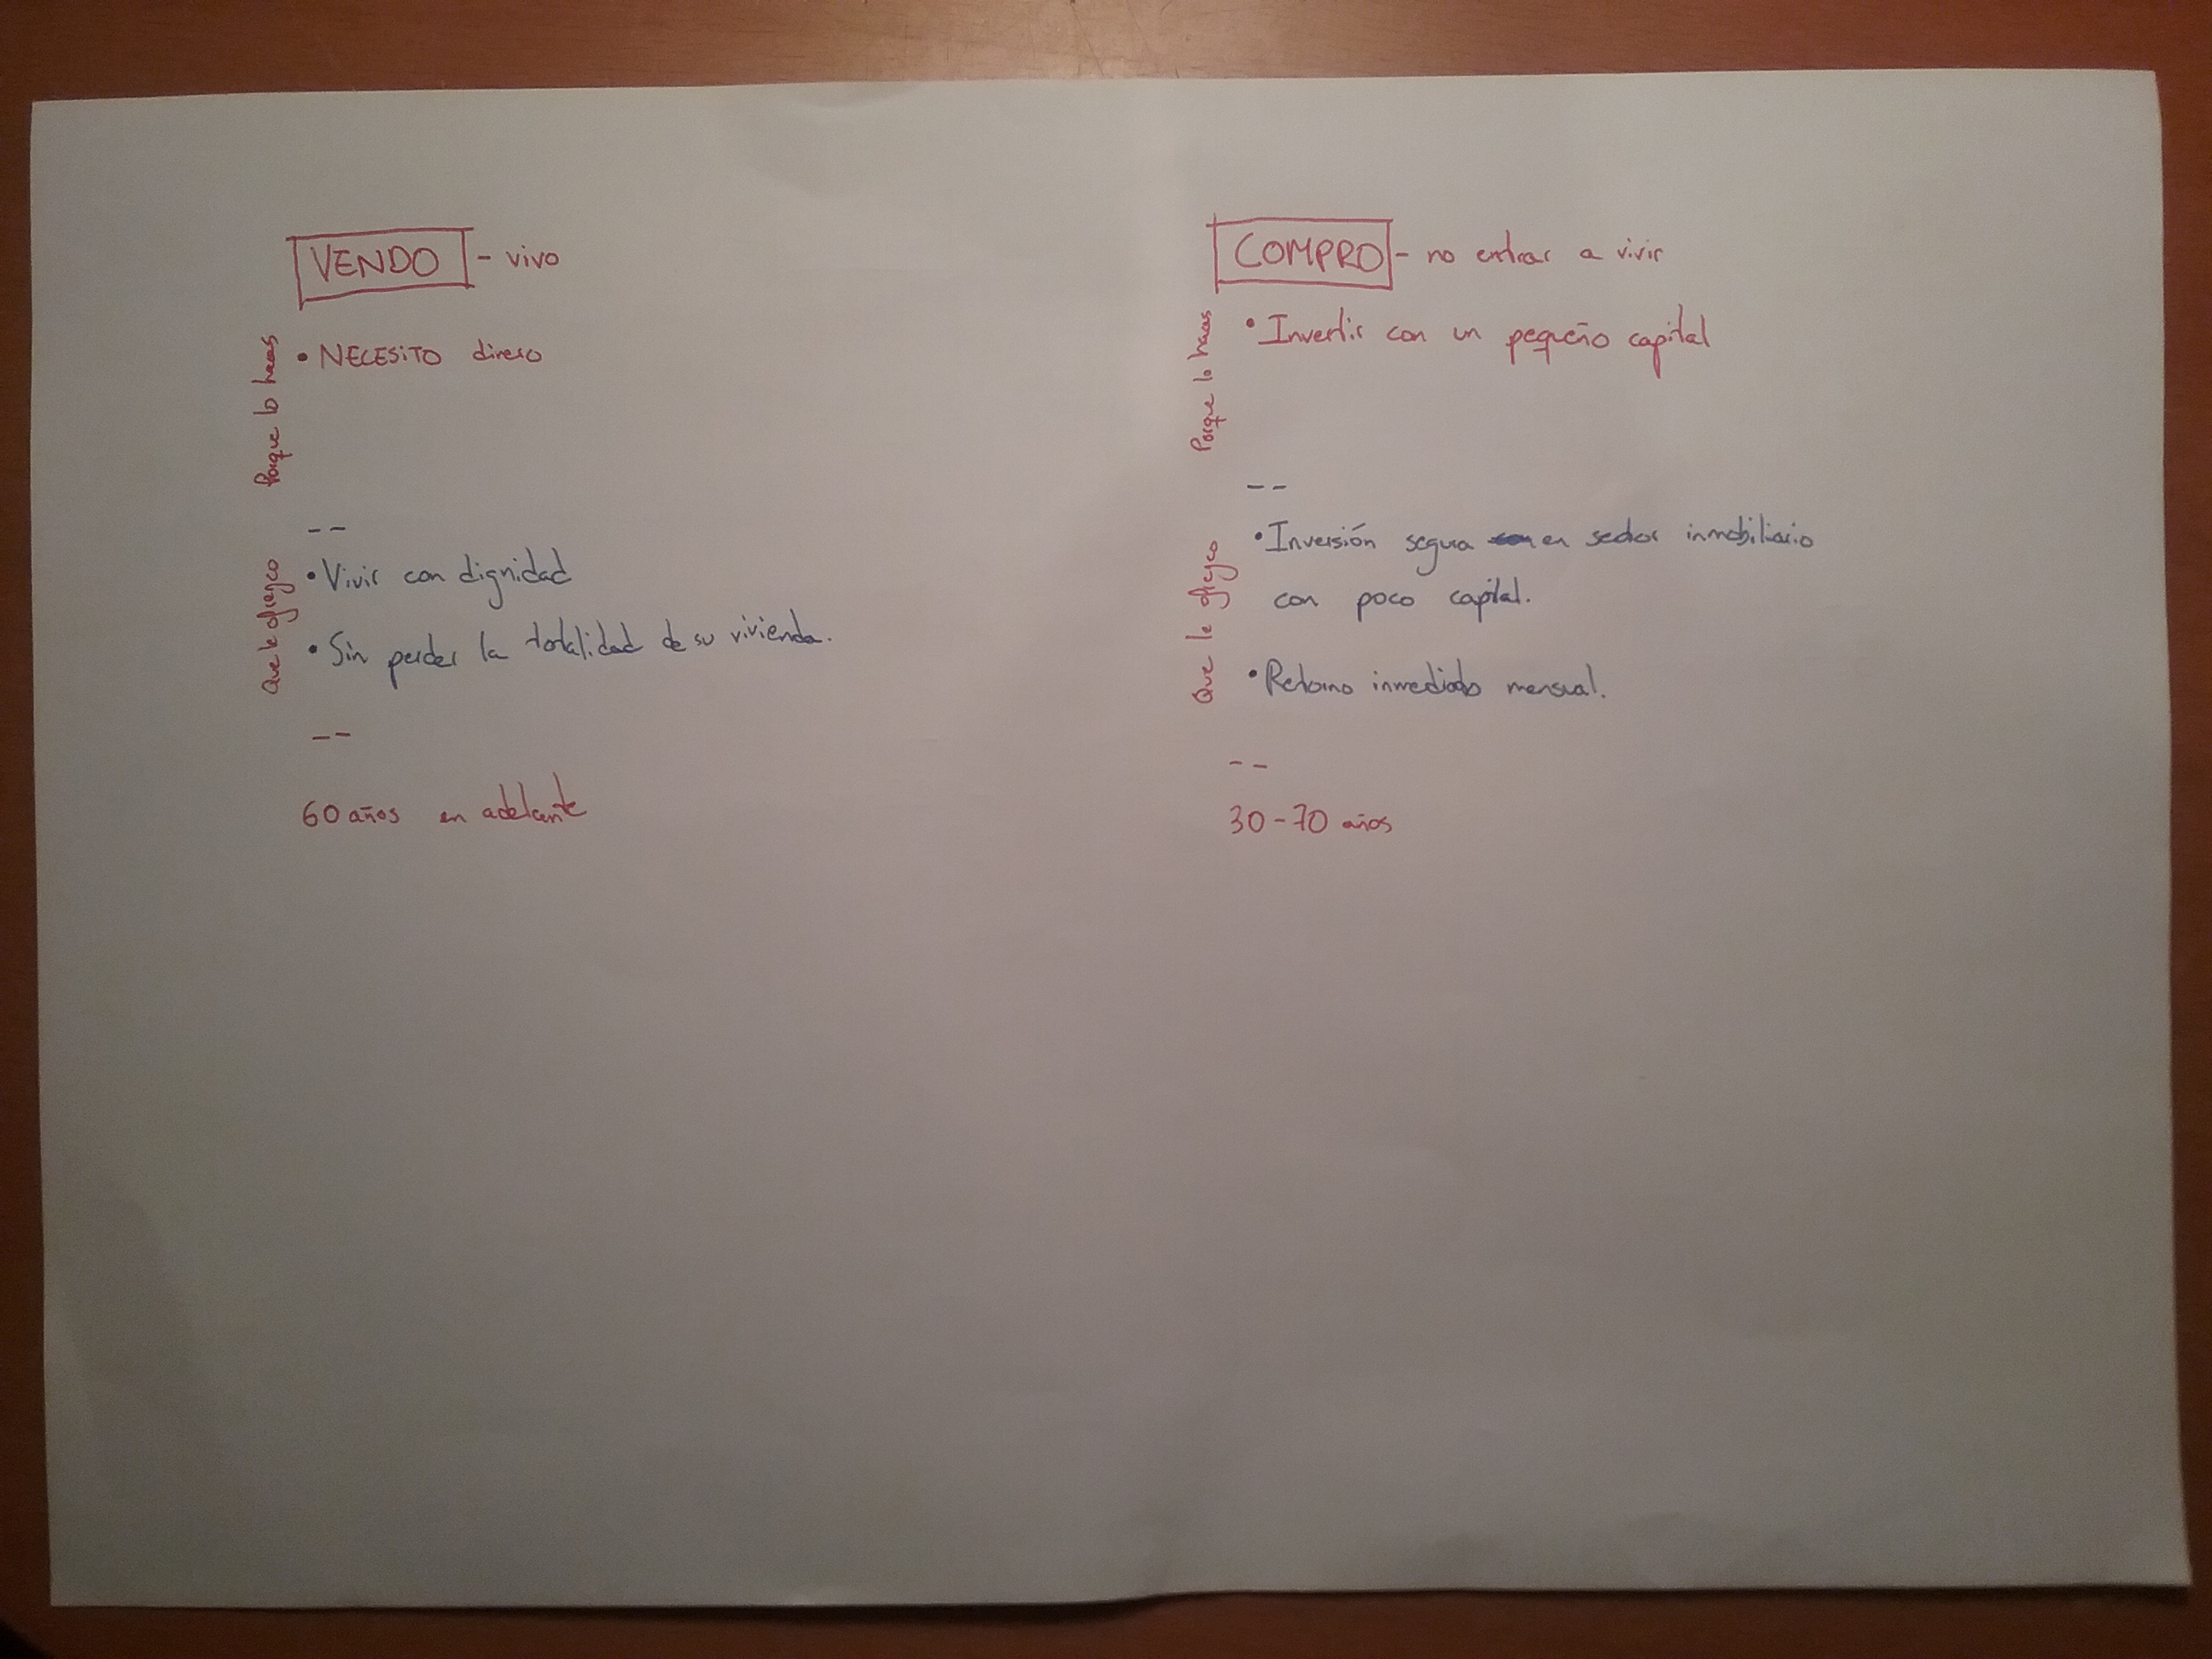 VENDO - vivo
Porque lo haces
• NECESITO dinero
--
Que le ofrezco
• Vivir con dignidad
• Sin perder la totalidad de su vivienda.
--
60 años en adelante
COMPRO - no entrar a vivir
Porque lo haces
• Invertir con un pequeño capital
--
Que le ofrezco
• Inversión segura en sector inmobiliario
con poco capital.
• Retorno inmediato mensual.
--
30-70 años